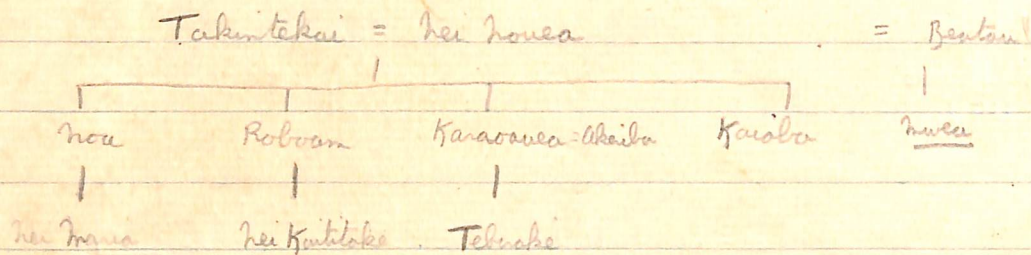 Takintekai = Nei Nouea = Beatau
Noa Roboam Karaouea = Akaiba Kaioba Nwea
Nei Maria Nei Kaititake Teberake